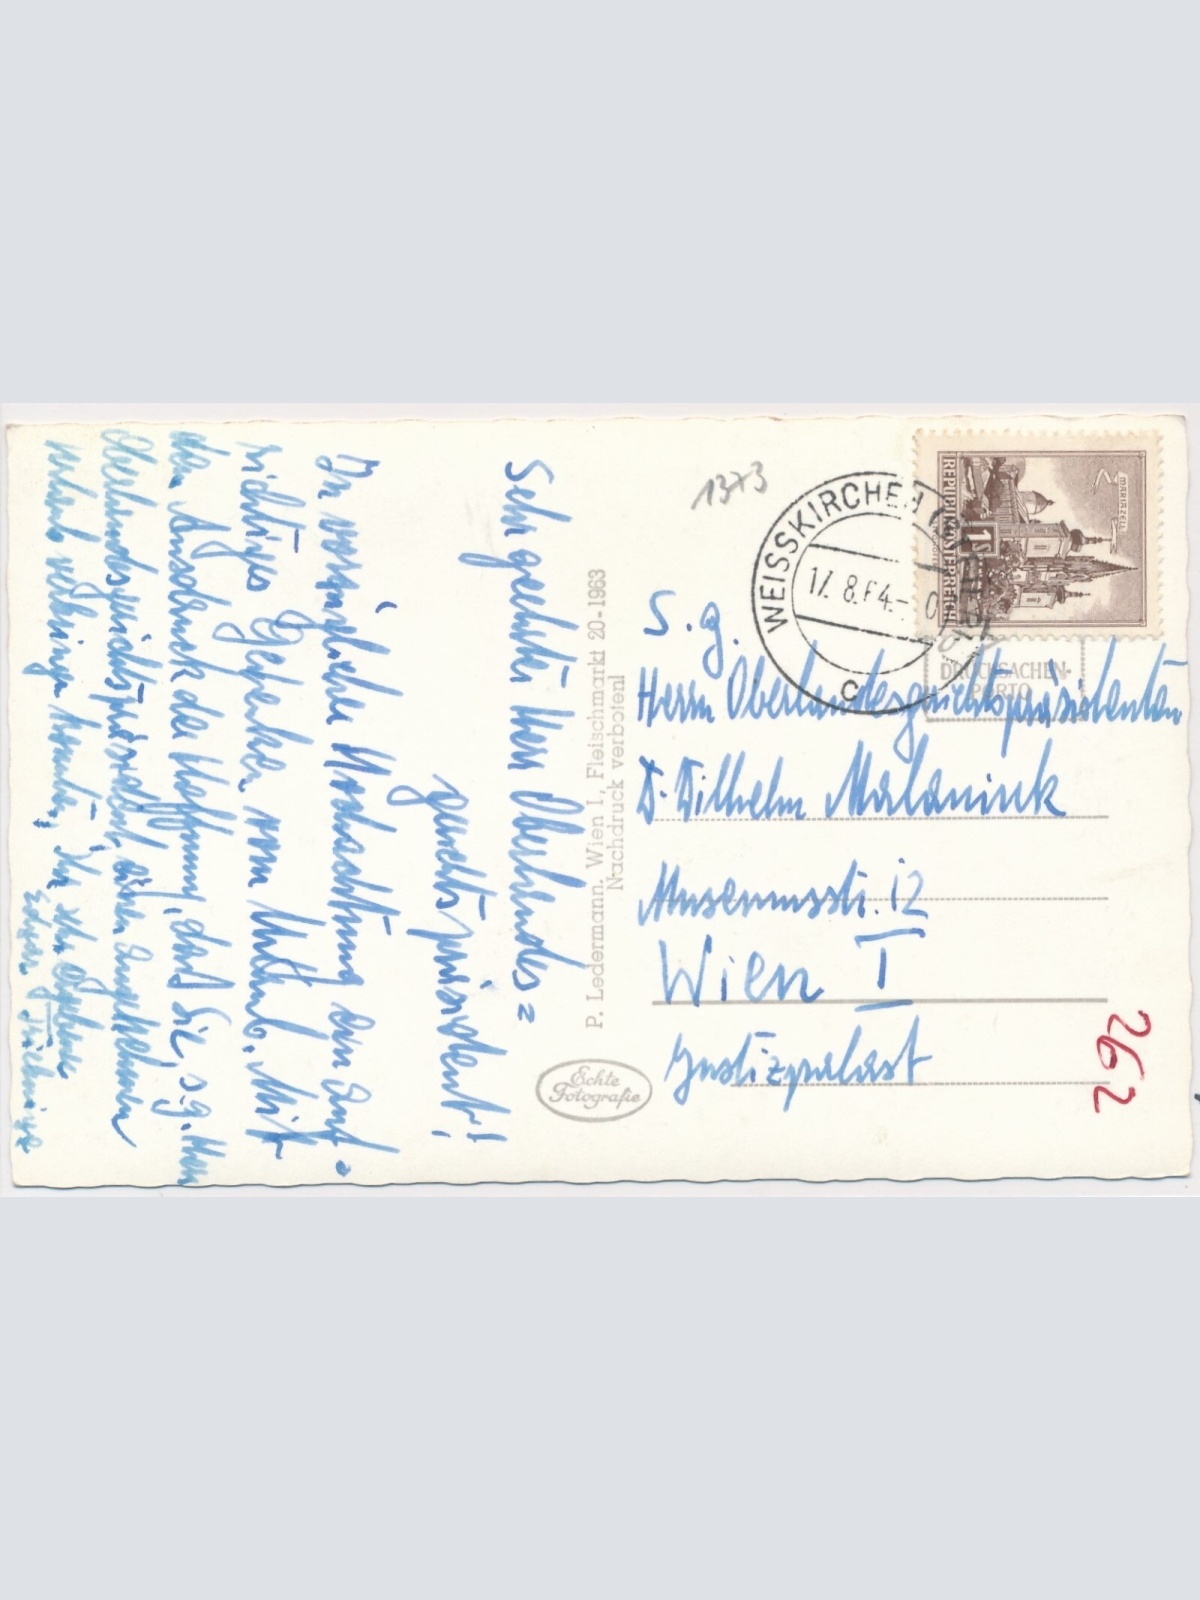 Sehr geehrter Herr Oberlandes=
gerichtspräsident!
In vorzüglicher Hochachtung den auf=
richtiges Gedenken vom Urlaub. Mit
dem Ausdruck der Hoffnung, daß Sie, s.g. Herr
Oberlandesgerichtspräsident, einen angenehmen
Urlaub verbringen konnten, Ihr sehr ergebener
P. Ledermann, Wien I, Fleischmarkt 20-1963
Nachdruck verboten!
Echte
Fotografie
1373
WEISSKIRCHEN
17. 8. 64.-
c
REPUBLIK ÖSTERREICH
1S
MARIAZELL
DRUCKSACHEN-
PORTO
S. g.
Herrn Oberlandesgerichtspräsidenten
Dr. Wilhelm Malaniuk
Museumsstr. 12
Wien I
Justizpalast
262